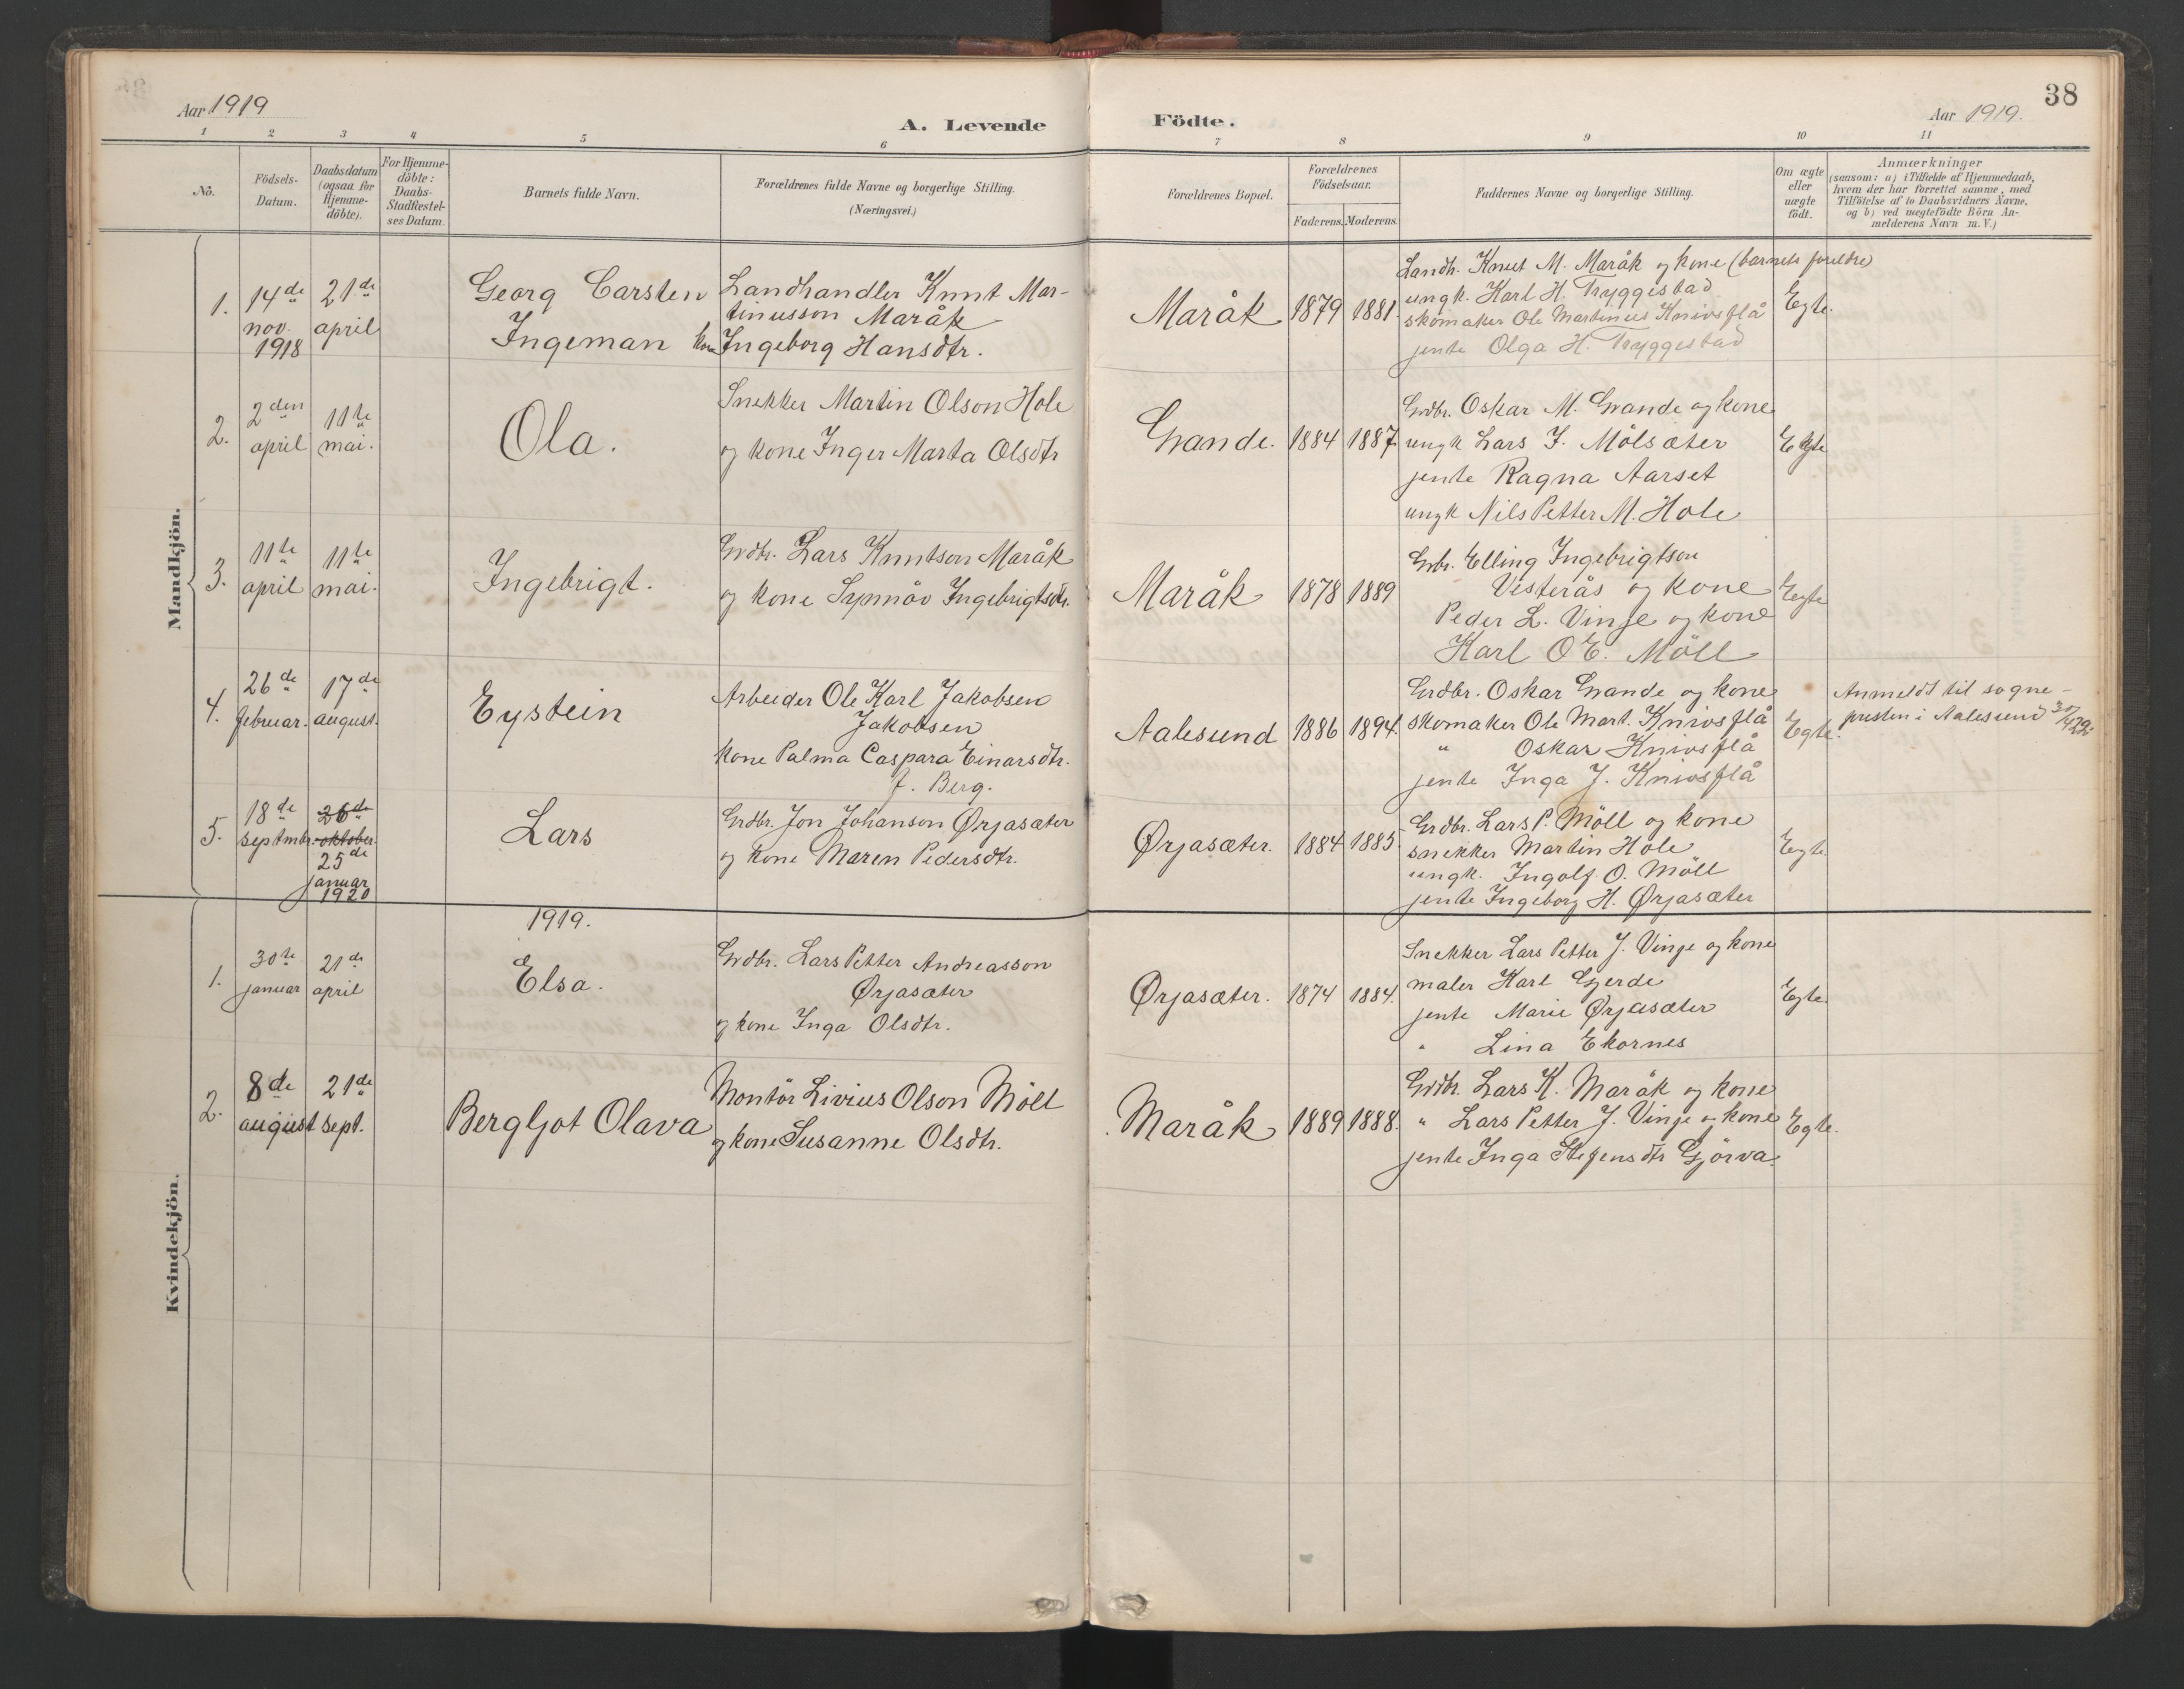 Aar 1919
A. Levende
1 2 3 4 5 6
No.
Födsels-
Datum.
Daabsdatum
(ogsaa for
Hjemme-
döbte).
For Hjemme-
döbte:
Daabs-
Stadfæstel-
ses Datum.
Barnets fulde Navn.
Forældrenes fulde Navne og borgerlige Stilling.
(Næringsvei.)
Mandkjön.
1.
14de
nov.
1918
21de
april
Georg Carsten
Ingeman
Landhandler Knut Mar-
tinusson Maråk
kone Ingeborg Hansdtr.
2.
2den
april
11te
mai.
Ola.
Snekker Martin Olson Hole
og kone Inger Marta Olsdtr
3.
11te
april
11te
mai.
Ingebrigt.
Grdbr. Lars Knutson Maråk
og kone Synnöv Ingebrigtsdtr.
4.
26de
februar.
17de
august.
Eystein
Arbeider Ole Karl Jakobsen
Jakobsen
kone Palma Caspara Einarsdtr.
J. Berg.
5.
18de
septmbr.
26de
oktober
25de
januar
1920
Lars
Grdbr. Jon Johanson Ørjasæter
og kone Maren Pedersdtr.
1919.
Kvindekjön.
1.
30te
januar
21de
april
Elsa.
Grdbr. Lars Petter Andreasson
Ørjasæter
og kone Inga Olsdtr.
2.
8de
august
21de
sept.
Bergljot Olava
Montör Livius Olson Möll
og kone Susanne Olsdtr.
38
Födte.
Aar 1919.
7 8 9 10 11
Forældrenes Bopæl.
Forældrenes
Födselsaar.
Faderens. Moderens.
Faddernes Navne og borgerlige Stilling.
Om ægte
eller
uægte
födt.
Anmærkninger
(saasom: a) i Tilfælde af Hjemmedaab,
hvem der har forrettet samme, med
Tilföielse af to Daabsvidners Navne.
og b) ved uægtefödte Börn An-
melderens Navn m. V.)
Maråk 1879 1881.
Landh. Knut M. Maråk og kone (barnets foreldre)
ungk. Karl H. Tryggestad
skomaker Ole Martinius Knivsflå
jente Olga H. Tryggestad
Egte.
Grande. 1884 1887
Grdbr. Oskar M. Grande og kone
ungk Lars J. Mölsæter
jente Ragna Aarset
ungk Nils Petter M. Hole
Egte
Maråk 1878 1889
Grbr. Elling Ingebrigtson
Vesterås og kone
Peder L. Vinje og kone
Karl O E. Möll
Egte
Aalesund 1886 1894.
Grdbr. Oskar Grande og kone
skomaker Ole Mart. Knivsflå
" Oskar Knivsflå
jente Inga J. Knivsflå
Egte.
Anmeldt til sogne-
presten i Aalesund
Ørjasæter. 1884 1885.
Grdbr. Lars P. Möll og kone
snekker Martin Hole
ungk. Ingolf O. Möll
jente Ingeborg H. Ørjasæter
Egte.
Ørjasæter. 1874 1884.
Snekker Lars Petter J. Vinje og kone
maler Karl Gjerde
jente Marie Ørjasæter
" Lina Ekornes
Egte.
Maråk 1889 1888.
Grdbr. Lars K. Maråk og kone
" Lars Petter J. Vinje og kone
jente Inga Stefensdtr Gjörva.
Egte.